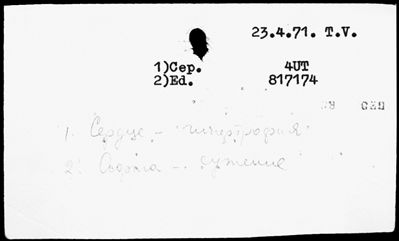 23.4.71. T.V.
1)Сер. 4UT
2)Ed. 817174
1. Сердце - гипертрофия
2. Аорта - сужение